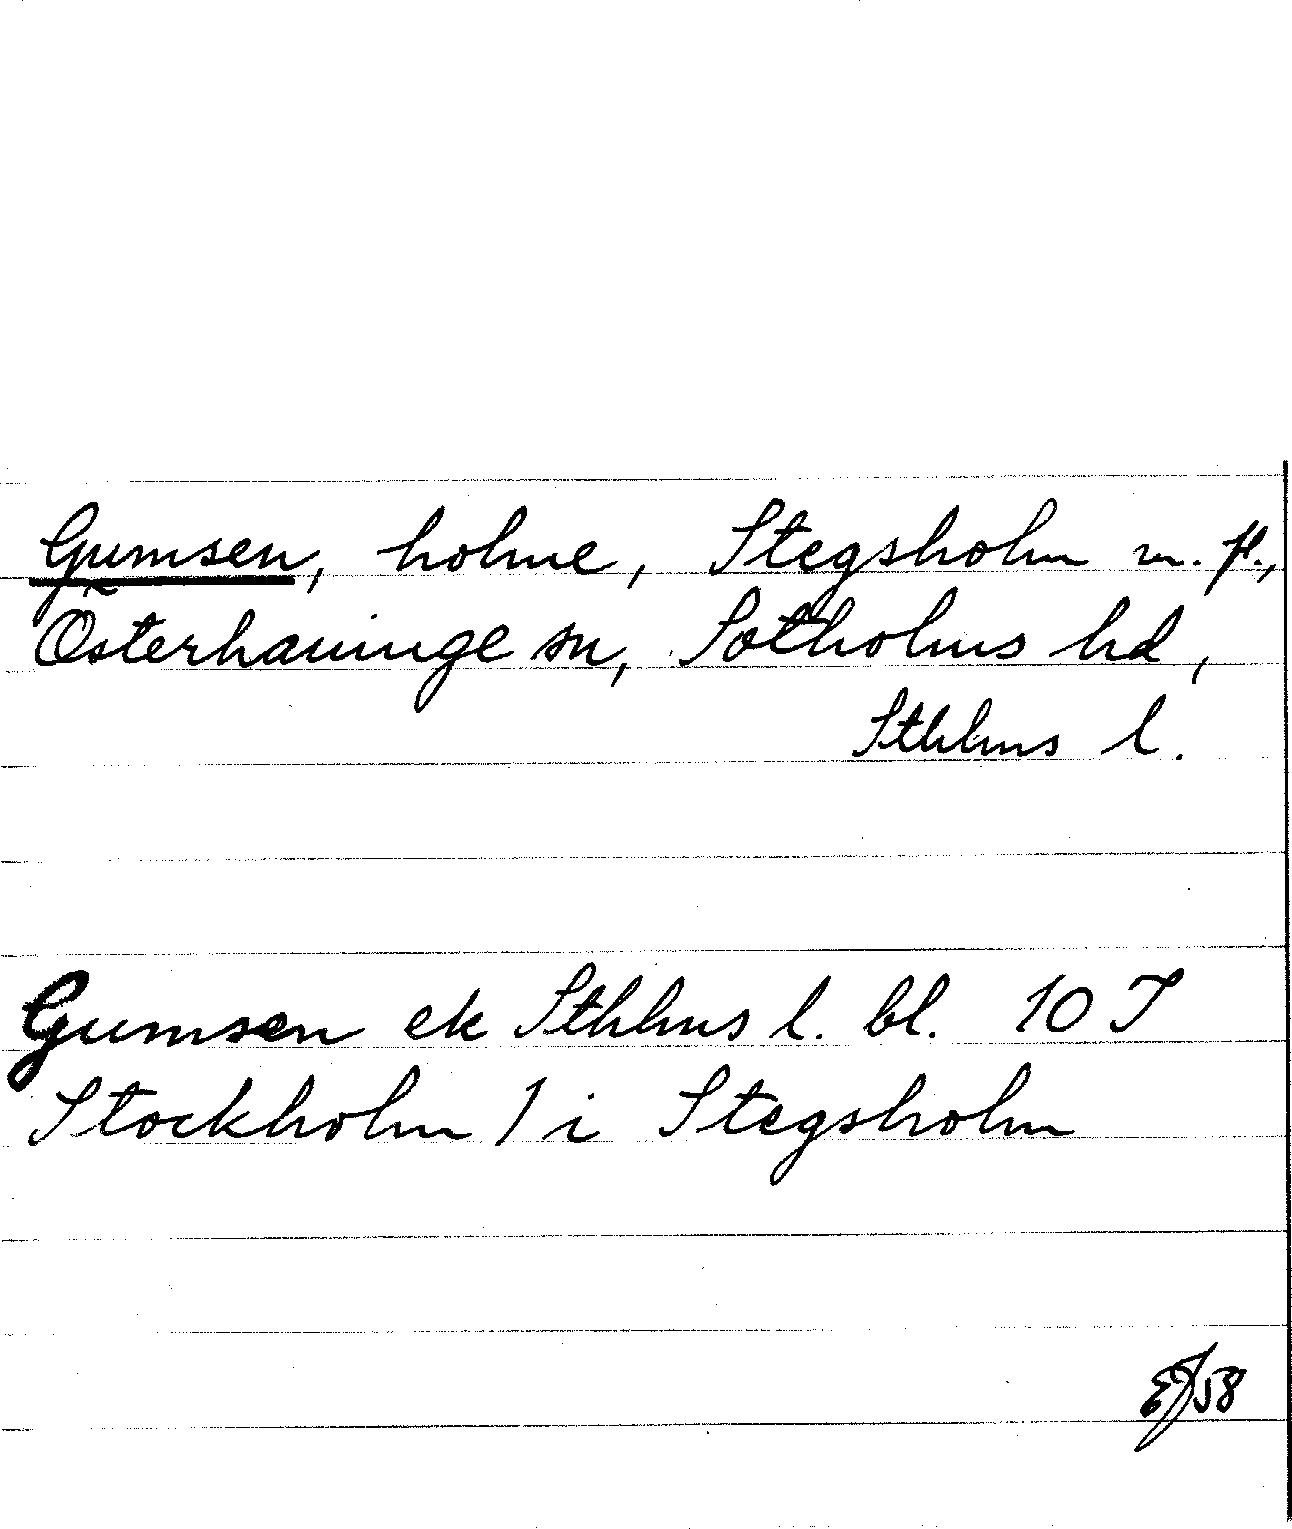 Gumsen, holme, Stegsholm m. fl.,
Österhaninge sn, Sotholms hd,
Sthlms l.
Gumsen ek Sthlms l. bl. 10 I
Stockholm / i Stegsholm
EJ 58